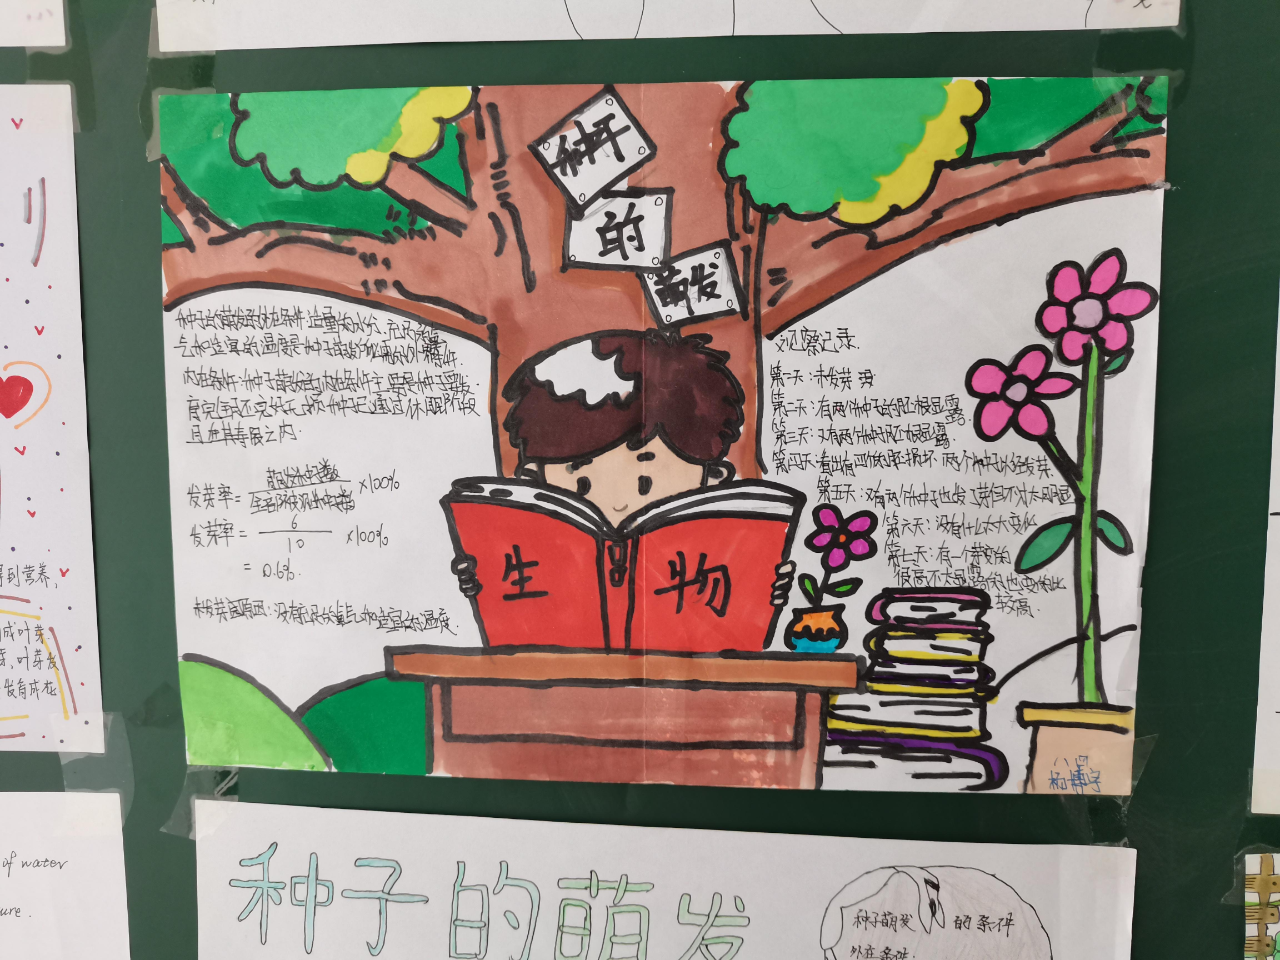 种子
的
萌发
种子的萌发的外在条件:适量的水分、充两的氧
气和适宜的温度是种子萌发所必需的外界条件.
内在条件:种子萌发的内在条件主要是种子要发
育完全而不完好无损,种子已通过休眠阶段
且在其寿命之内.
发芽率= 萌发种子数 ×100%
全部被测种子数
发芽率= 6 ×100%
10
= 0.6%.
未发芽原因:没有充足的氧气和适宜的温度.
观察记录.
第一天:未发芽
第二天:有两个种子的胚根显露.
第三天:又有两个种子胚根显露.
第五天:有两个种子也发了芽但不过太明显
第六天:没有什么太大变化
第七天:有一个芽变的
较高.
生
物
八四
杨博宇
得到营养,
成叶芽.
芽,叶芽发
发育成花
of water
ure.
种子的萌发
种子萌发的条件
外在条件: